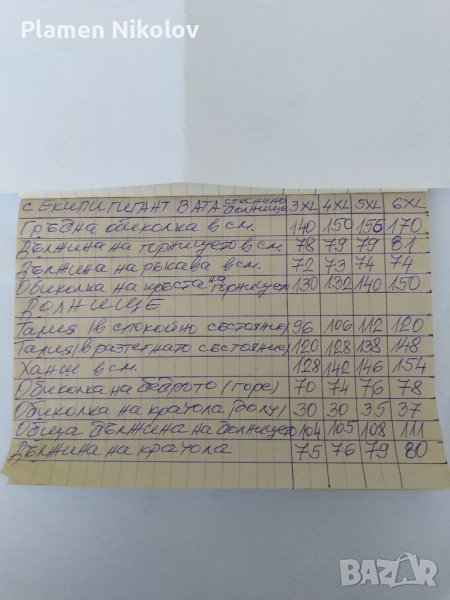 Plamen Nikolov
с ЕКИПИ ГИГАНТ ВАТА стегнено долнище 3XL 4XL 5XL 6XL
Гръдна обиколка в см. 140 150 156 170
Дължина на горнището в см. 78 79 79 81
Дължина на ръкава в см. 72 73 74 74
Обиколка на кръста на горнището 130 132 140 150
ДОЛНИЩЕ
Талия (в спокойно състояние) 96 106 112 120
Талия (в разтегнато състояние) 120 128 138 148
Ханш в см. 128 142 146 154
Обиколка на бедрото (горе) 70 74 76 78
Обиколка на крачола (долу) 30 30 35 37
Обща дължина на долнището 104 105 108 111
Дължина на крачола 75 76 79 80
BAZAR